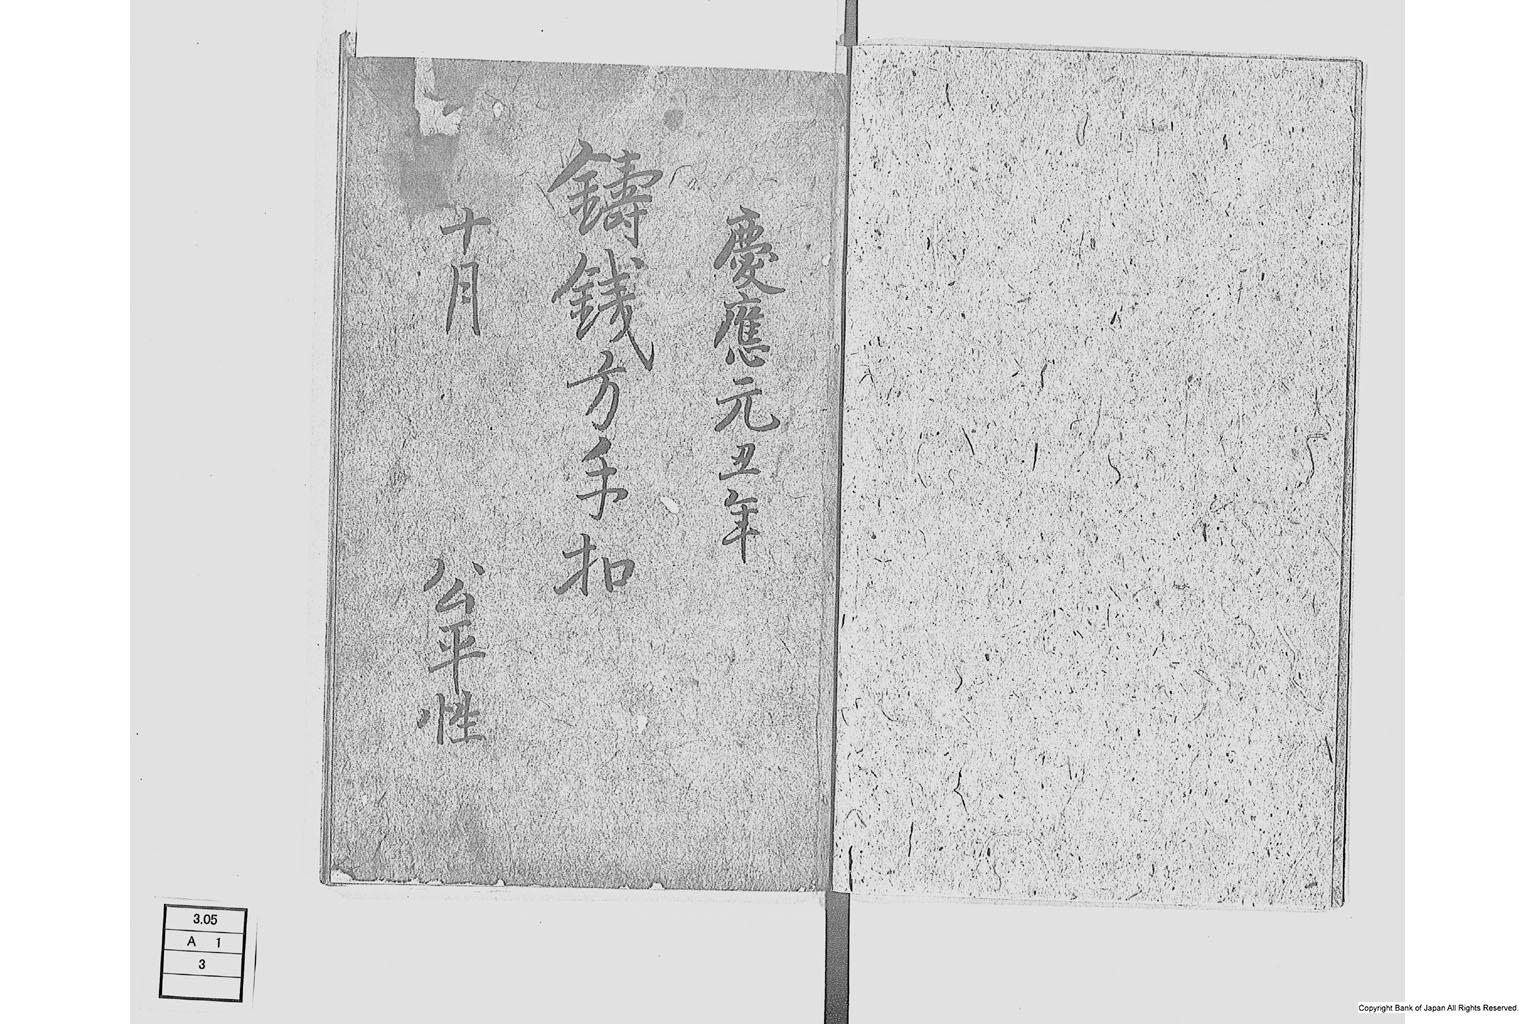 慶應元丑年
鑄銭方手扣
十月
公平性
3.05
A 1
3
Copyright Bank of Japan All Rights Reserved.